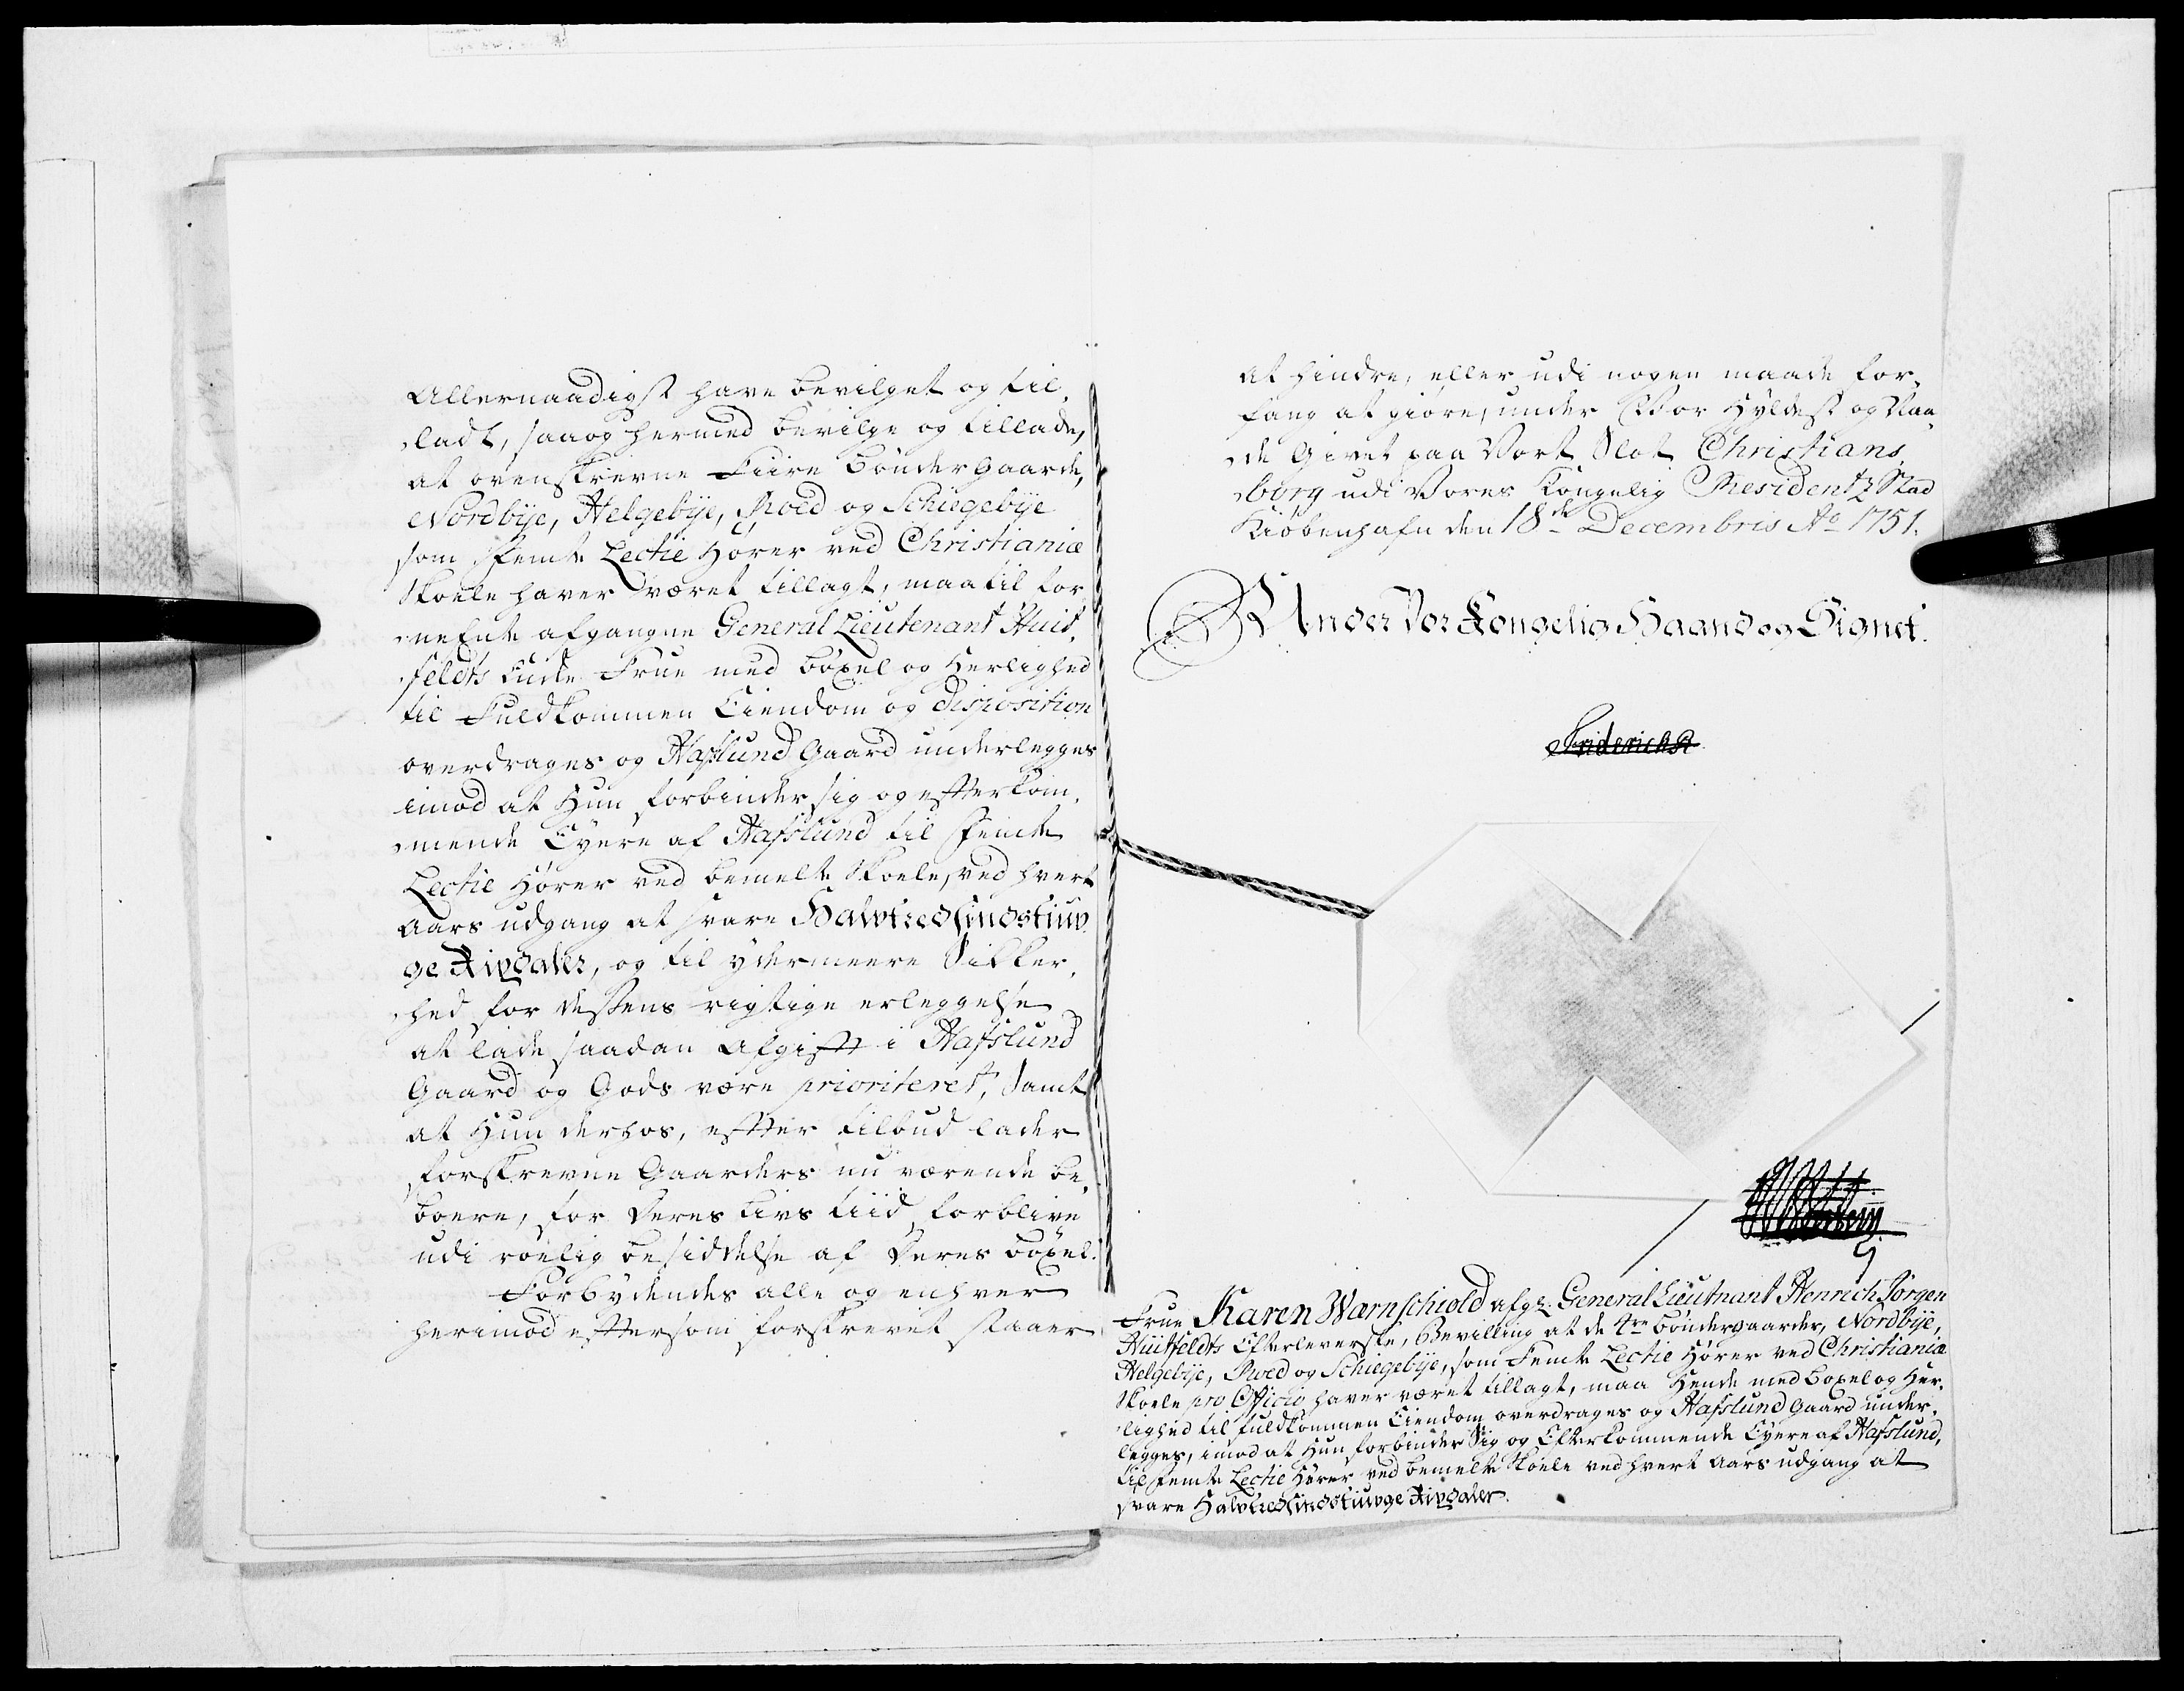 Allernaadigst have bevilget og til-
ladt, saa og hermed bevilge og tillade,
at ovenskrevne Fiire Bønder Gaarde,
Nordbÿe, Helgebÿe, Roed og Schiegebÿe
som femte Lectie Hører ved Christianiæ
Skoele haver været tillagt, maa til for-
neEnte afgangne General Lieutenant Huit-
feldts Enke Frue med Bøxel og Herlighed
til Fuldkommen Eiendom og disposition
overdrages og Hafslund Gaard underlegges
imod at Hun forbinder sig og efterkom-
mende Eyere af Hafslund til femte
Lectie Hører ved bemelte Skoele, ved hvert
Aars udgang at svare Halvtredsindstiuv-
ge Rixdaler, og til ydermeere Sikker-
hed for dessens rigtige erleggelse
at lade saadan Afgift i Hafslund
Gaard og Gods være prioriteret, Samt
at Hun derhos, efter tilbud lader
forskrevne Gaarders nu værende be-
boere, for Deres Livs tiid forblive
udi roelig besiddelse af Deres bøxel.
Forbydendes alle og enhver
herimod eftersom forskrevet staaer
at hindre, eller udi nogen maade for-
fang at giøre, under Vor Hyldest og Naa-
de Givet paa Vort Slot Christians-
borg udi Vores Kongelig Residentz Stad
Kiøbenhafn den 18de Decembris Ao 1751.
Under Vor Kongelig Haand og Signet.
Friderich R
Frue Karen Wærnschiold afg: General Lieutnant Henrich Jørgen
Huitfeldts Efterleverske, Bevilling at de 4re Bøndergaarder, Nordbÿe,
Helgebÿe, Roed og Schiegebÿe, som Femte Lectie Hører ved Christianiæ
Skoele pro Officio haver været tillagt, maa Hende med Boxel og Her-
lighed til fuldkommen Eiendom overdrages og Hafslund Gaard under-
legges, imod at Hun forbinder Sig og Efterkommende Eyere af Hafslund,
til femte Lectie Hører ved bemelte Skoele ved hvert Aars udgang at
svare Halvtredsindstiuvge Rixdaler.